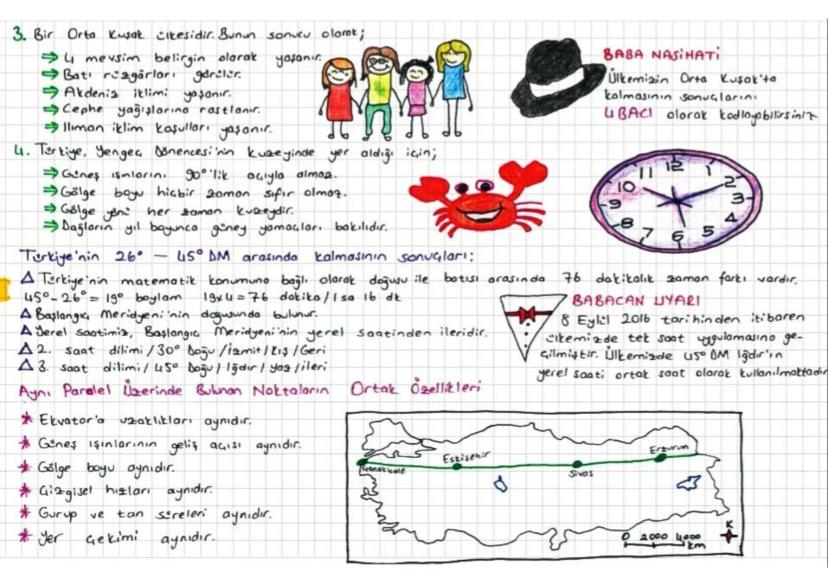 3. Bir Orta Kuşak ülkesidir. Bunun sonucu olarak;
⇒ 4 mevsim belirgin olarak yaşanır.
⇒ Batı rüzgârları görülür.
⇒ Akdeniz iklimi yaşanır.
⇒ Cephe yağışlarına rastlanır.
⇒ Ilıman iklim koşulları yaşanır.
BABA NASİHATİ
Ülkemizin Orta Kuşak'ta
kalmasının sonuçlarını
4 BACI olarak kodlayabilirsiniz
4. Türkiye, Yengeç Dönencesi'nin kuzeyinde yer aldığı için;
⇒ Güneş ışınlarını 90°'lik açıyla almaz.
⇒ Gölge boyu hiçbir zaman sıfır olmaz.
⇒ Gölge yönü her zaman kuzeydir.
⇒ Dağların yıl boyunca güney yamaçları bakılıdır.
12 1 2 3 4 5 6 7 8 9 10 11
Türkiye'nin 26° — 45° DM arasında kalmasının sonuçları:
△ Türkiye'nin matematik konumuna bağlı olarak doğusu ile batısı arasında 76 dakikalık zaman farkı vardır.
45° - 26° = 19° boylam 19x4 = 76 dakika / 1 sa 16 dk
△ Başlangıç Meridyeni'nin doğusunda bulunur.
△ Yerel saatimiz, Başlangıç Meridyeni'nin yerel saatinden ileridir.
△ 2. saat dilimi / 30° Doğu / İzmit / Kış / Geri
△ 3. saat dilimi / 45° Doğu / Iğdır / yaz / ileri
BABACAN UYARI
8 Eylül 2016 tarihinden itibaren
ülkemizde tek saat uygulamasına ge-
çilmiştir. Ülkemizde 45° DM Iğdır'ın
yerel saati ortak saat olarak kullanılmaktadır
Aynı Paralel Üzerinde Bulunan Noktaların Ortak Özellikleri
* Ekvator'a uzaklıkları aynıdır.
* Güneş ışınlarının geliş açısı aynıdır.
* Gölge boyu aynıdır.
* Çizgisel hızları aynıdır.
* Gurup ve tan süreleri aynıdır.
* Yer çekimi aynıdır.
Çanakkale
Eskişehir
Sivas
Erzurum
K
0 2000 4000
km